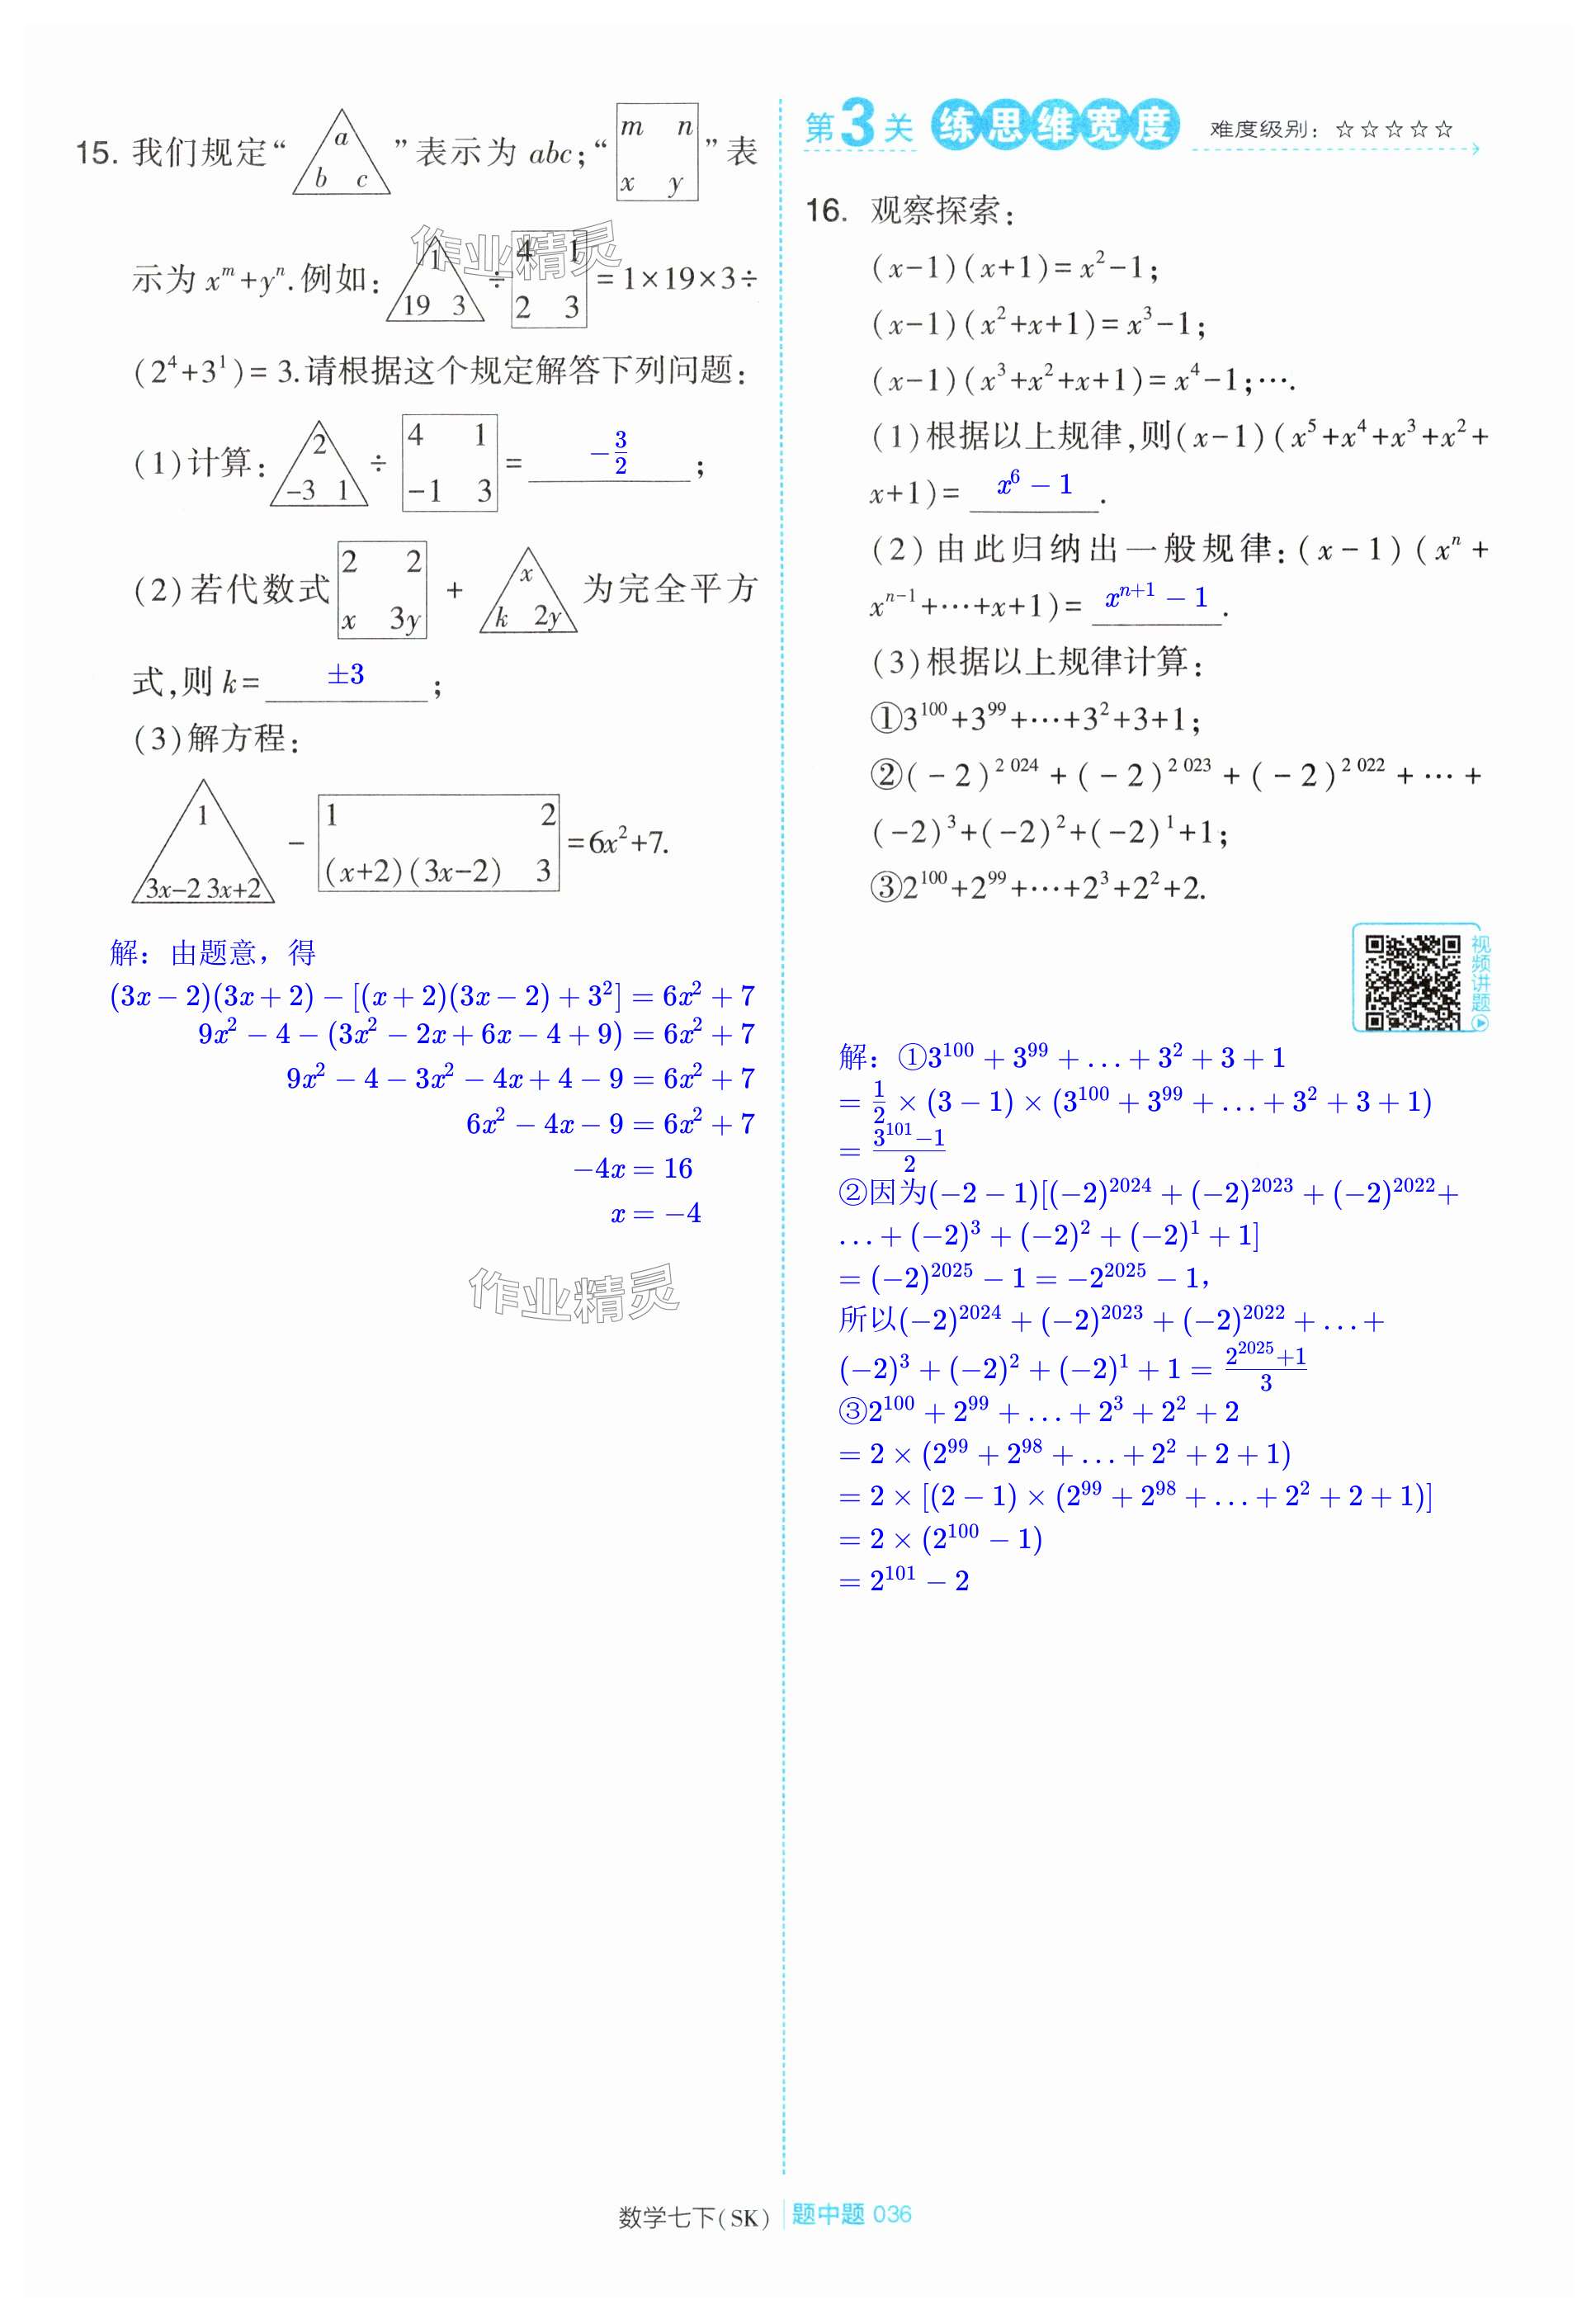 15. 我们规定“ a b c ”表示为 abc；“ m n x y ”表
示为 xᵐ+yⁿ.例如： 1 19 3 ÷ 4 1 2 3 =1×19×3÷
(2⁴+3¹)=3.请根据这个规定解答下列问题：
(1)计算： 2 -3 1 ÷ 4 1 -1 3 = -3/2 ；
(2)若代数式 2 2 x 3y + x k 2y 为完全平方
式,则 k= ±3 ；
(3)解方程：
1 3x-2 3x+2 - 1 2 (x+2)(3x-2) 3 =6x²+7.
解：由题意，得
(3x-2)(3x+2)-[(x+2)(3x-2)+3²]=6x²+7
9x²-4-(3x²-2x+6x-4+9)=6x²+7
9x²-4-3x²-4x+4-9=6x²+7
6x²-4x-9=6x²+7
-4x=16
x=-4
作业精灵
作业精灵
第3关 练思维宽度 难度级别：☆☆☆☆☆
16. 观察探索：
(x-1)(x+1)=x²-1；
(x-1)(x²+x+1)=x³-1；
(x-1)(x³+x²+x+1)=x⁴-1；….
(1)根据以上规律,则(x-1)(x⁵+x⁴+x³+x²+
x+1)= x⁶-1 .
(2)由此归纳出一般规律：(x-1)(xⁿ+
xⁿ⁻¹+…+x+1)= xⁿ⁺¹-1 .
(3)根据以上规律计算：
①3¹⁰⁰+3⁹⁹+…+3²+3+1；
②(-2)²⁰²⁴+(-2)²⁰²³+(-2)²⁰²²+…+
(-2)³+(-2)²+(-2)¹+1；
③2¹⁰⁰+2⁹⁹+…+2³+2²+2.
视频讲题
解：①3¹⁰⁰+3⁹⁹+…+3²+3+1
=1/2×(3-1)×(3¹⁰⁰+3⁹⁹+…+3²+3+1)
=(3¹⁰¹-1)/2
②因为(-2-1)[(-2)²⁰²⁴+(-2)²⁰²³+(-2)²⁰²²+
…+(-2)³+(-2)²+(-2)¹+1]
=(-2)²⁰²⁵-1=-2²⁰²⁵-1，
所以(-2)²⁰²⁴+(-2)²⁰²³+(-2)²⁰²²+…+
(-2)³+(-2)²+(-2)¹+1=(2²⁰²⁵+1)/3
③2¹⁰⁰+2⁹⁹+…+2³+2²+2
=2×(2⁹⁹+2⁹⁸+…+2²+2+1)
=2×[(2-1)×(2⁹⁹+2⁹⁸+…+2²+2+1)]
=2×(2¹⁰⁰-1)
=2¹⁰¹-2
数学七下(SK) 题中题 036